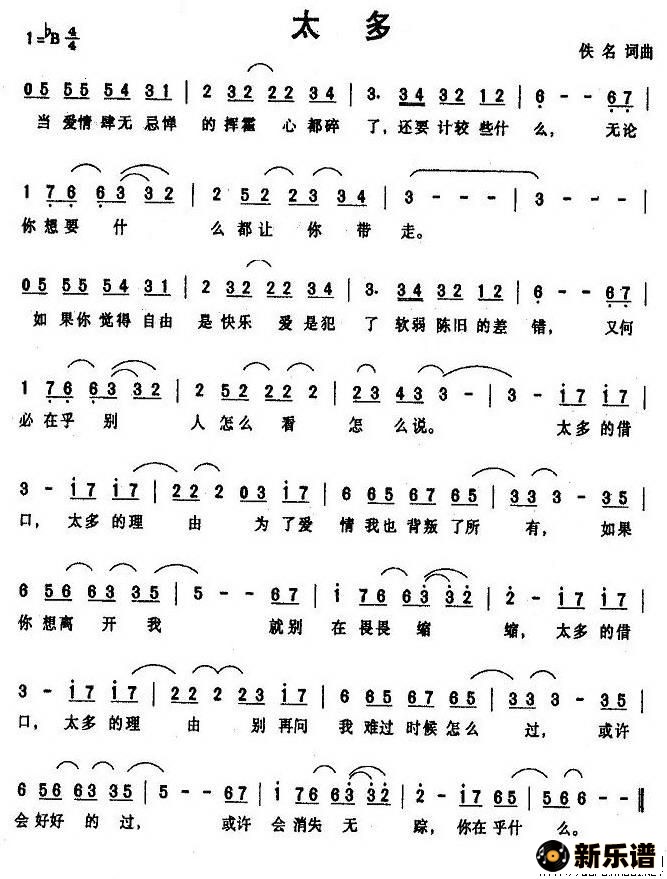 太多
1=♭B 4/4
佚名 词曲
05 55 54 31 | 2 32 22 34 | 3. 34 32 12 | 6 - - 67 |
当 爱情 肆无 忌惮 的 挥霍 心都碎 了，还要 计较 些什 么， 无论
1 76 63 32 | 2 52 23 34 | 3 - - - | 3 - - - |
你 想要 什 么都让 你 带 走。
05 55 54 31 | 2 32 22 34 | 3. 34 32 12 | 6 - - 67 |
如 果你 觉得 自由 是 快乐 爱 是犯 了 软弱 陈旧 的差 错， 又何
1 76 63 32 | 2 52 22 2 | 23 43 3 - | 3 - i7 i7 |
必 在乎 别 人 怎么 看 怎 么说。 太多 的借
3 - i7 i7 | 22 2 03 i7 | 6 65 67 65 | 33 3 - 35 |
口， 太多 的理 由 为 了爱 情 我也 背叛 了所 有， 如果
6 56 63 35 | 5 - - 67 | i 76 63 32 | 2 - i7 i7 |
你 想离 开 我 就别 在 畏畏 缩 缩， 太多 的借
3 - i7 i7 | 22 2 23 i7 | 6 65 67 65 | 33 3 - 35 |
口， 太多 的理 由 别 再问 我 难过 时候 怎么 过， 或许
6 56 63 35 | 5 - - 67 | i 76 63 32 | 2 - i7 65 | 566 - - ‖
会 好好 的 过， 或许 会 消失 无 踪， 你在 乎什 么。
新乐谱